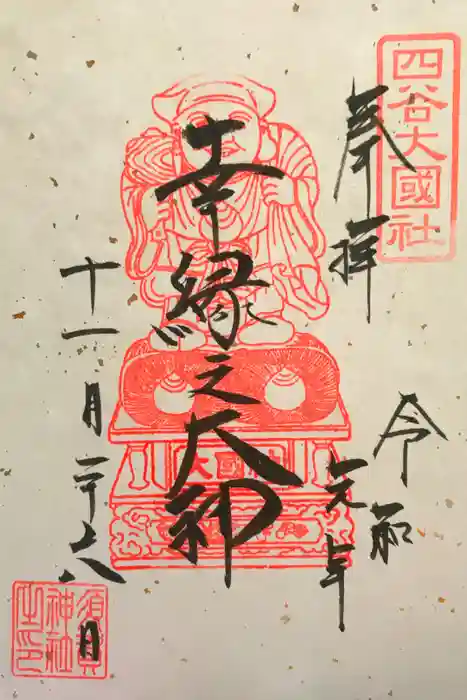 四谷大國社
奉拝
令和
元年
幸縁之大神
大國社
十一月二十八
日
須賀
神社
之印